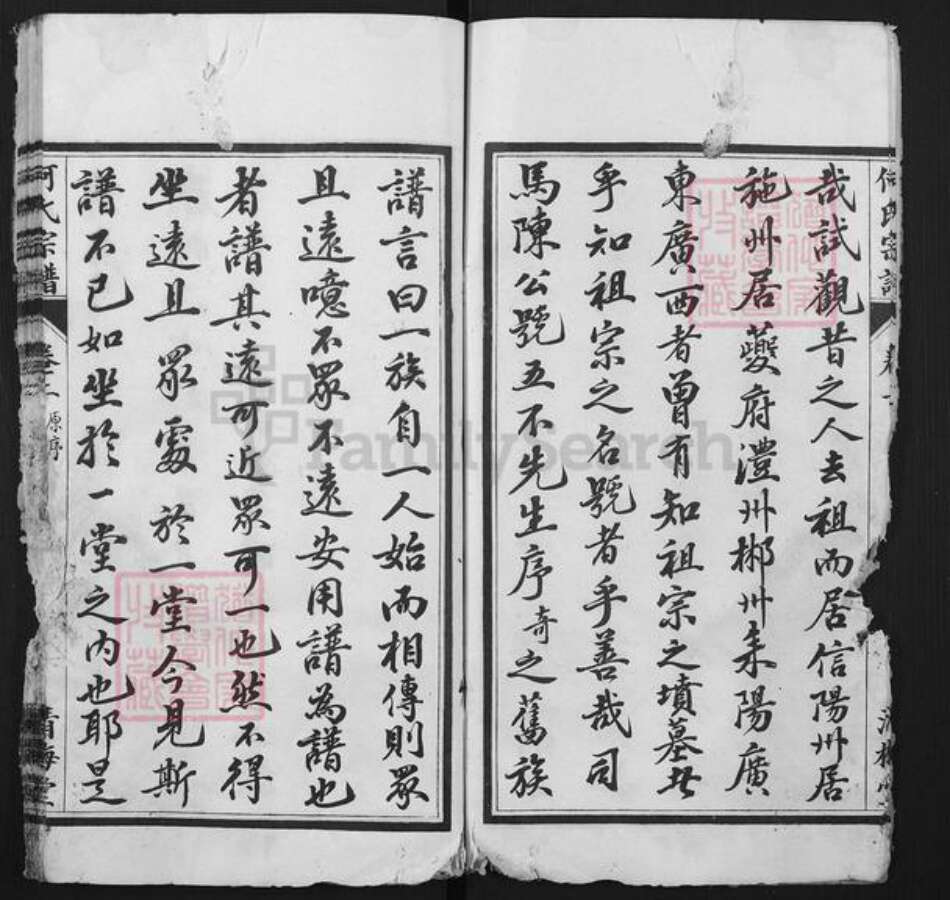 何氏宗譜
卷
哉試觀昔之人去祖而居信陽州居
施州居夔府澧州郴州耒陽廣
東廣西者曾有知祖宗之墳墓者
乎知祖宗之名號者乎善哉司
馬陳公號五不先生序奇之舊族
譜言曰一族自一人始而相傳則眾
且遠噫不眾不遠安用譜為譜也
者譜其遠可近眾可一也然不得
坐遠且眾處於一堂今見斯
譜不已如坐於一堂之內也耶是
何氏宗譜
卷之
原序
堂
FamilySearch